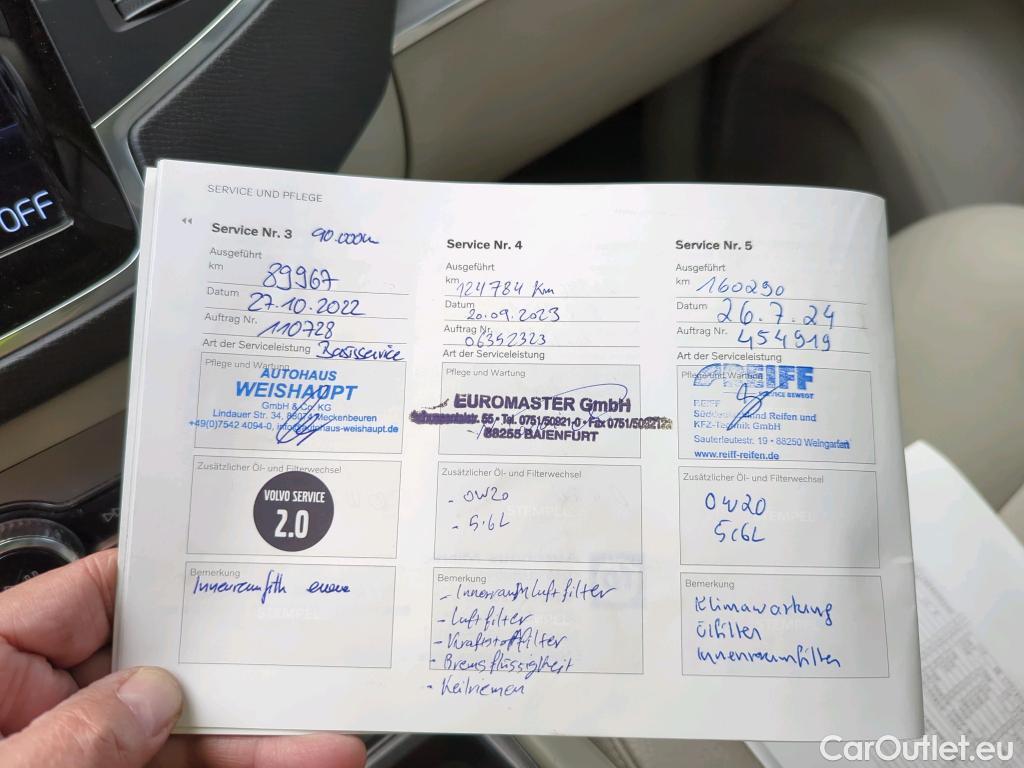 OFF
SERVICE UND PFLEGE
Service Nr. 3 90.000km
Ausgeführt
km 89967
Datum 27.10.2022
Auftrag Nr. 110728
Art der Serviceleistung Basisservice
Pflege und Wartung
AUTOHAUS
WEISHAUPT
GmbH & Co. KG
Lindauer Str. 34, 88074 Meckenbeuren
+49(0)7542 4094-0, info@autohaus-weishaupt.de
Zusätzlicher Öl- und Filterwechsel
VOLVO SERVICE
2.0
Bemerkung
STEMPEL
Service Nr. 4
Ausgeführt
km 124784 Km
Datum
20.09.2023
Auftrag Nr.
06352323
Art der Serviceleistung
Pflege und Wartung
EUROMASTER GmbH
55 - Tel. 0751/50921-0 - Fax 0751/509212
88255 BAIENFURT
Zusätzlicher Öl- und Filterwechsel
- 0W20
- 5.6L
STEMPEL
Bemerkung
- Innenraumluftfilter
- Luftfilter
- Kraftstoffilter
- Bremsflüssigkeit
- Keilriemen
Service Nr. 5
Ausgeführt
km 160290
Datum 26.7.24
Auftrag Nr. 454919
Art der Serviceleistung
Pflege und Wartung
REIFF
SERVICE BEWEGT
REIFF
Süddeutschland Reifen und
KFZ-Technik GmbH
Sauterleutestr. 19 - 88250 Weingarten
www.reiff-reifen.de
Zusätzlicher Öl- und Filterwechsel
0W20
5,6L
STEMPEL
Bemerkung
Klimawartung
Ölfilter
Innenraumfilter
CarOutlet.eu